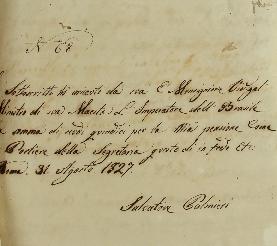 N. 68
Sottoscritto ho ricevuto da sua E. Monsignore Vidigal
Ministro di sua Maestà L'Imperatore dell Brasile
somma di scudi quindici per la mia pensione Come
Portiere della Segretaria questo di in fede etc.
Roma 31 Agosto 1827.
Salvatore Palmieri